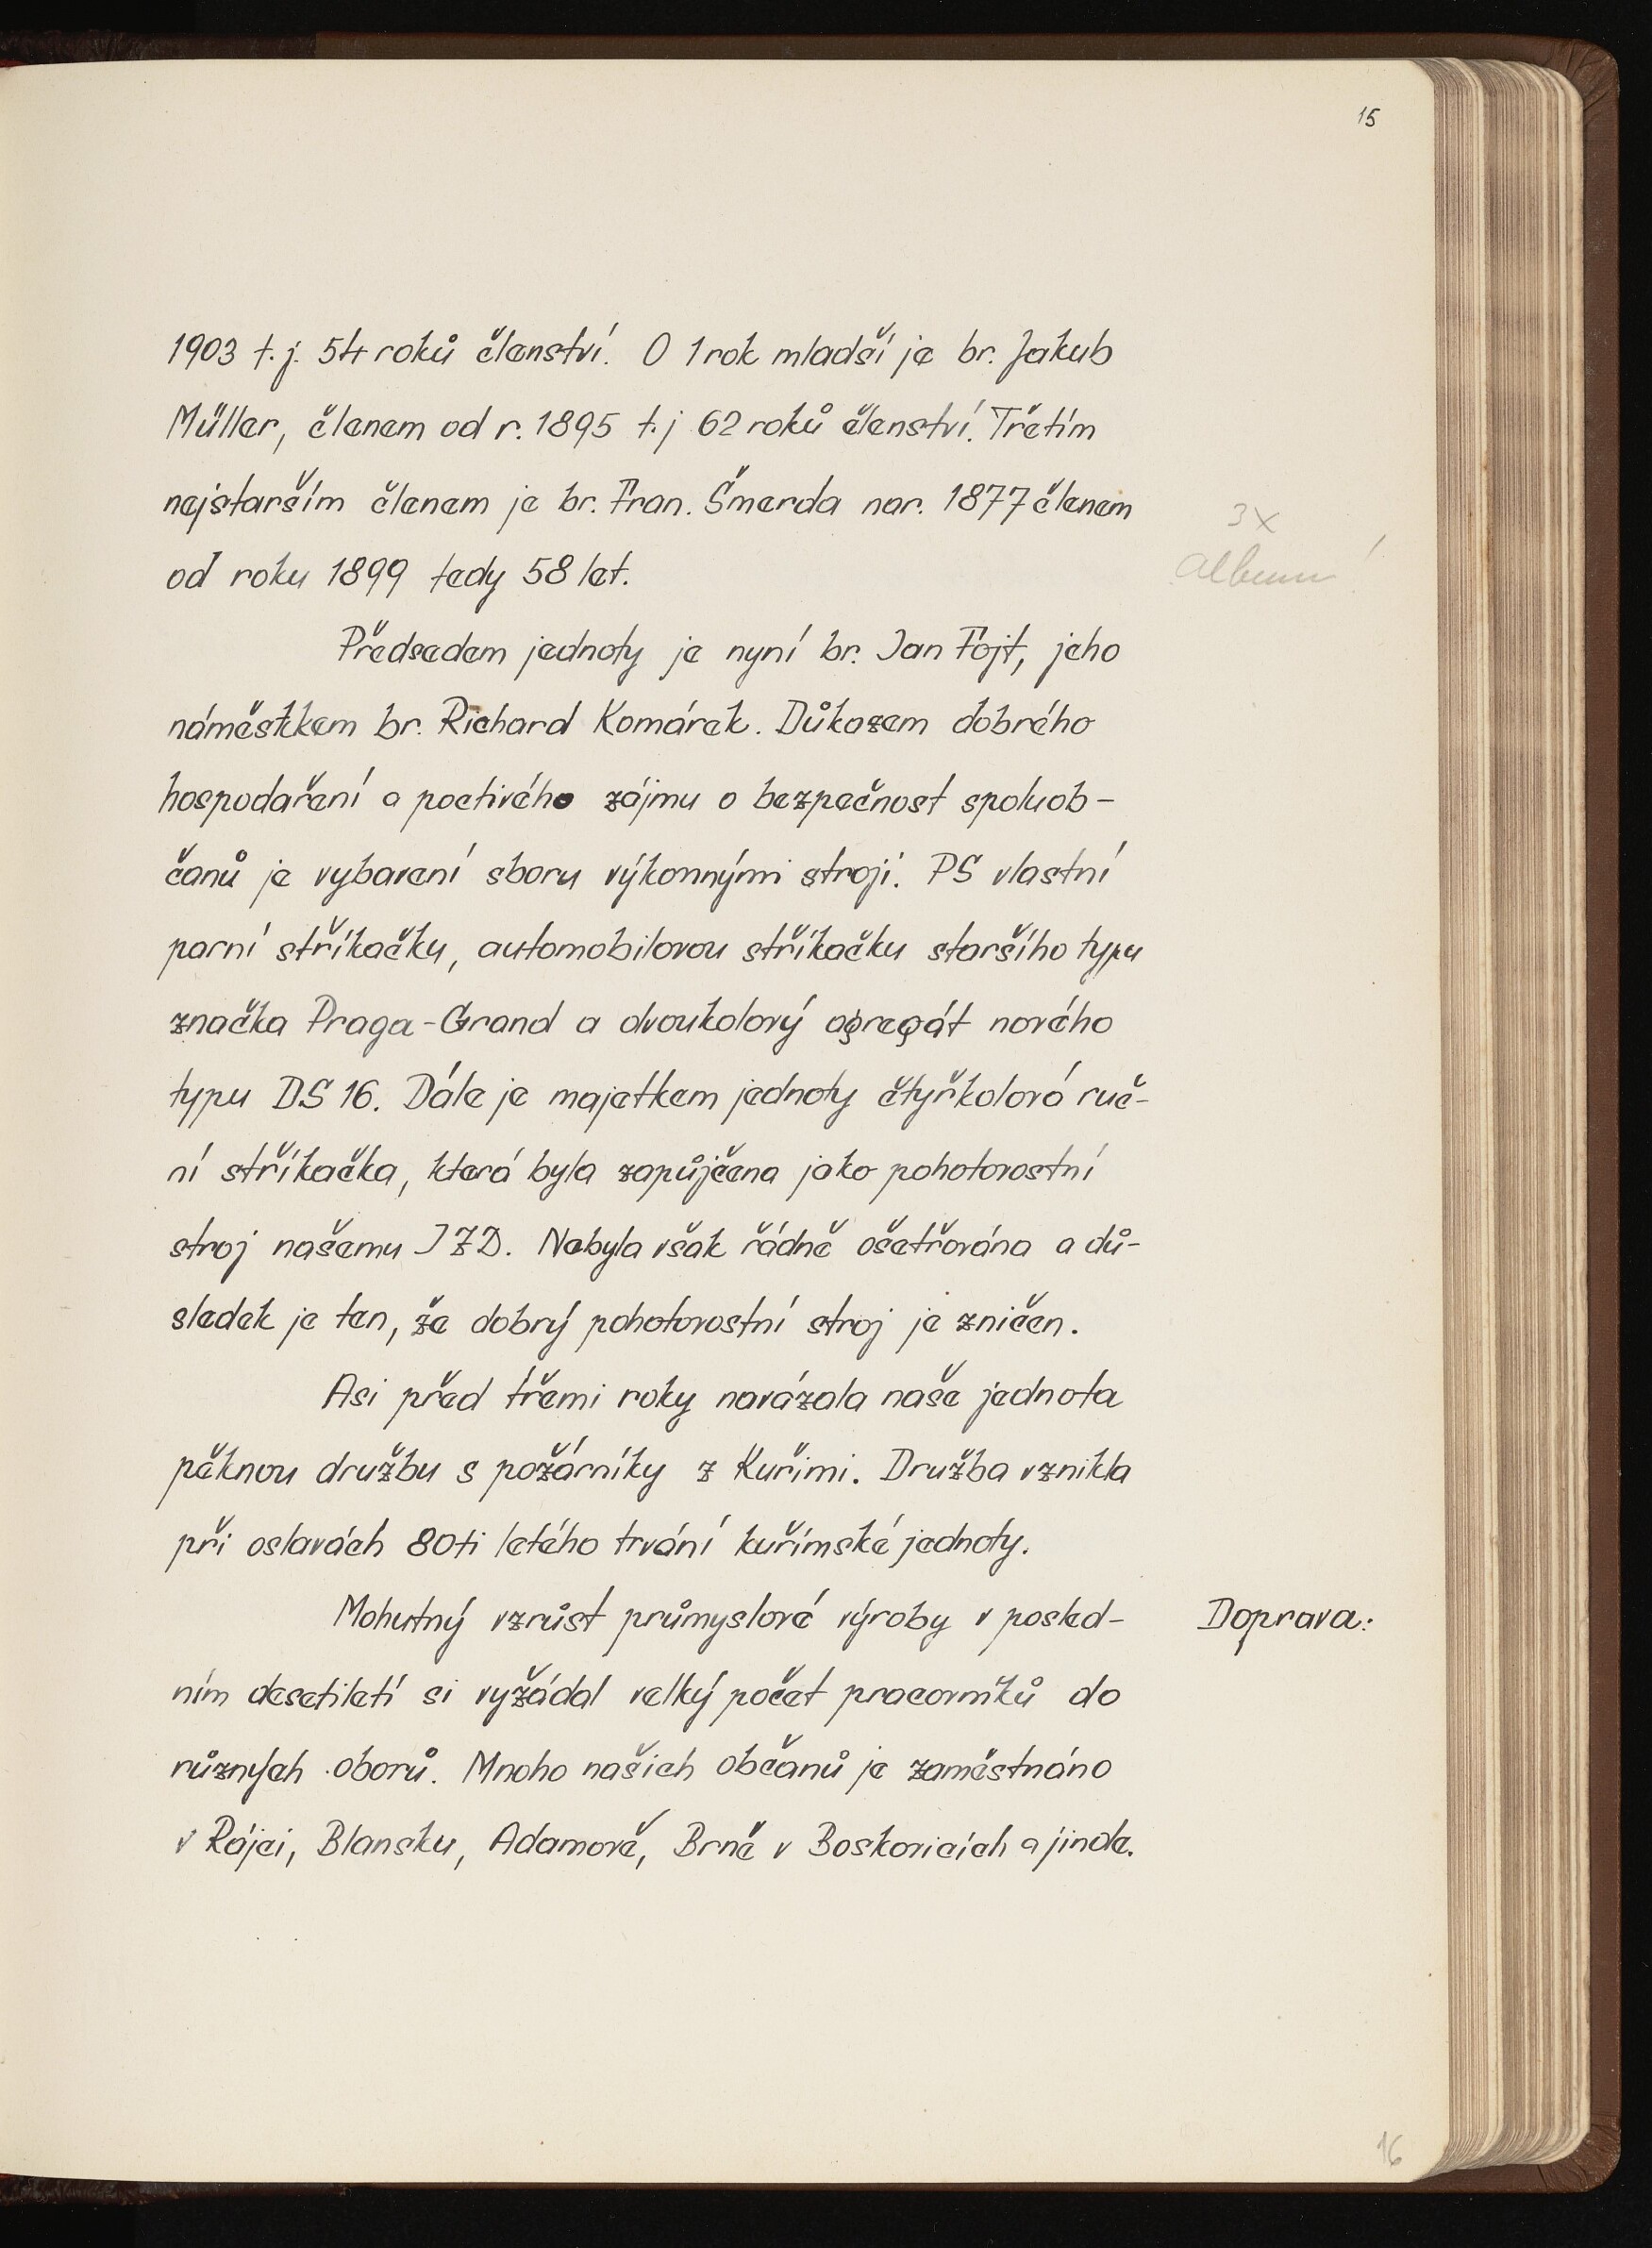 15
1903 t.j. 54 roků členství. O 1 rok mladší je br. Jakub
Müller, členem od r. 1895 t.j 62 roků členství. Třetím
nejstarším členem je br. Fran. Šmerda nar. 1877 členem
od roku 1899 tedy 58 let.
3x
album!
Předsedem jednoty je nyní br. Jan Fojt, jeho
náměstkem br. Richard Komárek. Důkazem dobrého
hospodaření a poctivého zájmu o bezpečnost spoluob-
čanů je vybavení sboru výkonnými stroji. PS vlastní
parní stříkačku, automobilovou stříkačku staršího typu
značka Praga-Grand a dvoukolový agregát nového
typu DS 16. Dále je majetkem jednoty čtyřkolová ruč-
ní stříkačka, která byla zapůjčena jako pohotovostní
stroj našemu JZD. Nebyla však řádně ošetřována a dů-
sledek je ten, že dobrý pohotovostní stroj je zničen.
Asi před třemi roky navázala naše jednota
pěknou družbu s požárníky z Kuřimi. Družba vznikla
při oslavách 80ti letého trvání kuřimské jednoty.
Mohutný vzrůst průmyslové výroby v posled-
Doprava:
ním desetiletí si vyžádal velký počet pracovníků do
různých oborů. Mnoho našich občanů je zaměstnáno
v Rájci, Blansku, Adamově, Brně v Boskovicích a jinde.
16